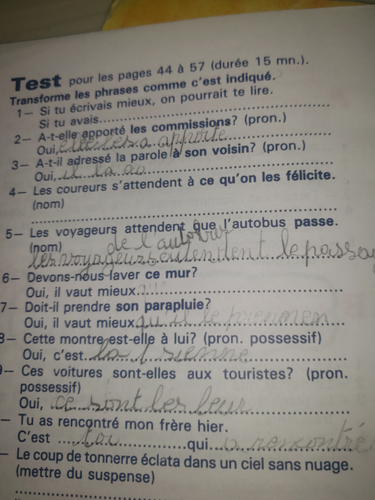 Test pour les pages 44 à 57 (durée 15 mn.).
Transforme les phrases comme c'est indiqué.
1— Si tu écrivais mieux, on pourrait te lire.
Si tu avais
2— A-t-elle apporté les commissions? (pron.)
Oui, elle les a apporté
3— A-t-il adressé la parole à son voisin? (pron.)
Oui, il la
4— Les coureurs s'attendent à ce qu'on les félicite.
(nom)
5— Les voyageurs attendent que l'autobus passe.
de l'autobus
(nom)
les voyageurs attendent le passa
6— Devons-nous laver ce mur?
Oui, il vaut mieux
7— Doit-il prendre son parapluie?
Oui, il vaut mieux qu'il le
8— Cette montre est-elle à lui? (pron. possessif)
Oui, c'est la sienne
9— Ces voitures sont-elles aux touristes? (pron.
possessif)
Oui, ce sont les leur
— Tu as rencontré mon frère hier.
C'est toi qui a rencontré
— Le coup de tonnerre éclata dans un ciel sans nuage.
(mettre du suspense)